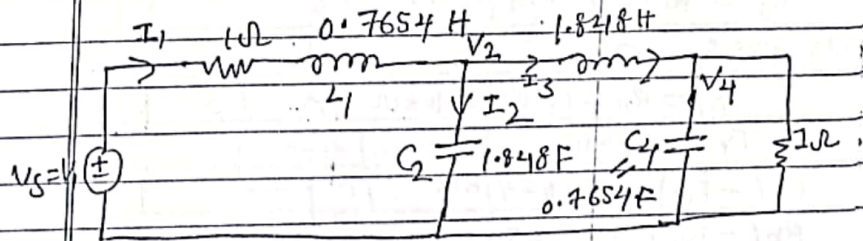 I₁ 1Ω 0.7654 H V2 1.848H
L₁ I₃ V4
I2
Vs=V₁ C₂ 1.848F C4 1Ω
0.7654F